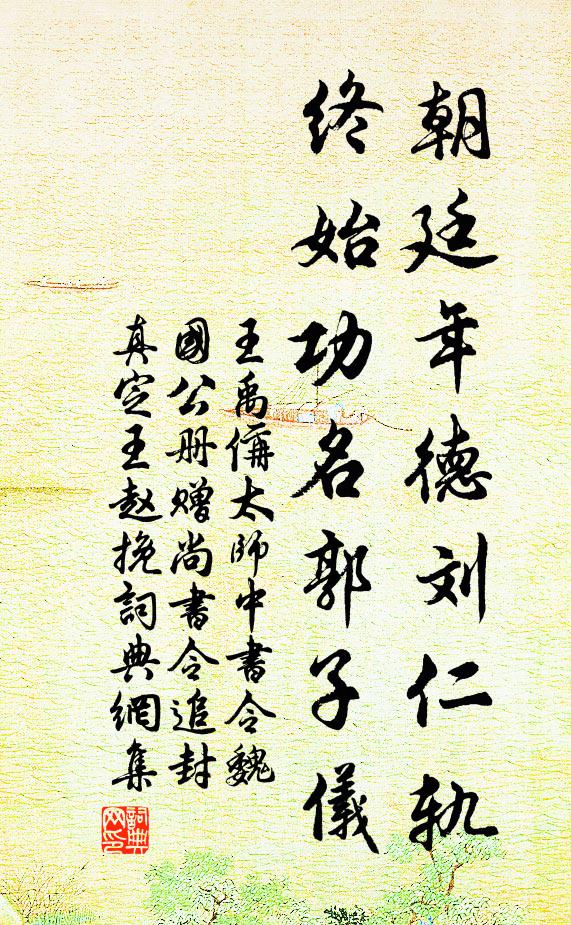 朝廷年德刘仁轨
终始功名郭子儀
王禹偁太师中書令魏
國公册赠尚書令追封
真定王赵挽詞典網集
詞典
网印